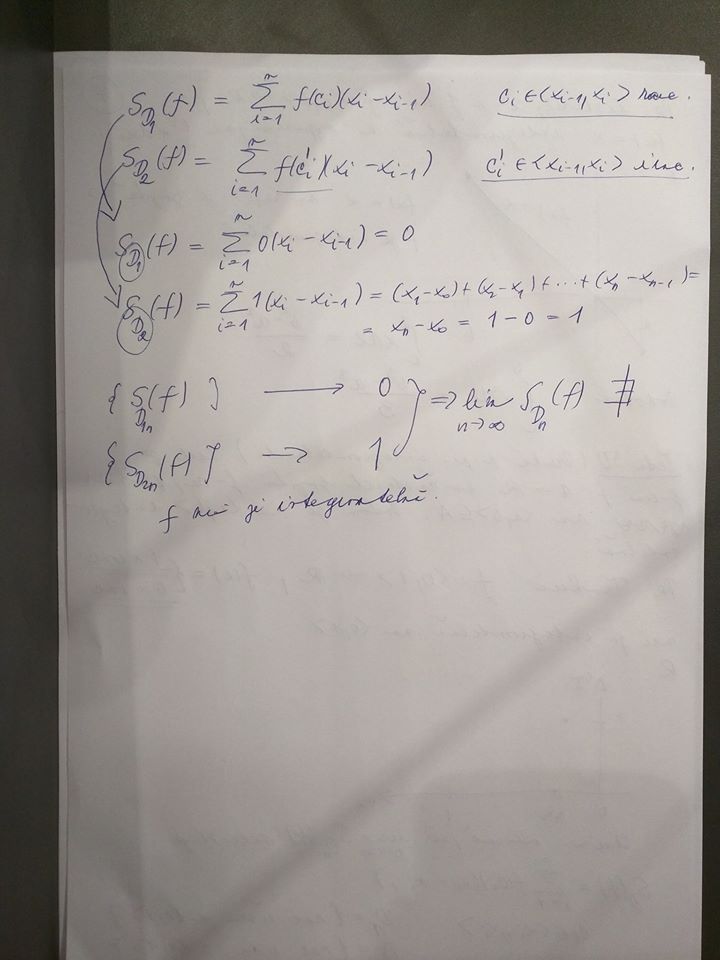 S_{D_1}(f) = \sum_{i=1}^{n} f(c_i)(x_i - x_{i-1}) c_i ∈ <x_{i-1}, x_i> rac.
S_{D_2}(f) = \sum_{i=1}^{n} f(c_i')(x_i - x_{i-1}) c_i' ∈ <x_{i-1}, x_i> irac.
S_{D_1}(f) = \sum_{i=1}^{n} 0(x_i - x_{i-1}) = 0
S_{D_2}(f) = \sum_{i=1}^{n} 1(x_i - x_{i-1}) = (x_1 - x_0) + (x_2 - x_1) + ... + (x_n - x_{n-1}) =
= x_n - x_0 = 1 - 0 = 1
{ S_{D_{1n}}(f) } → 0 } ⇒ lim_{n→∞} S_{D_n}(f) ∄
{ S_{D_{2n}}(f) } → 1
f nie je integrovateľná.